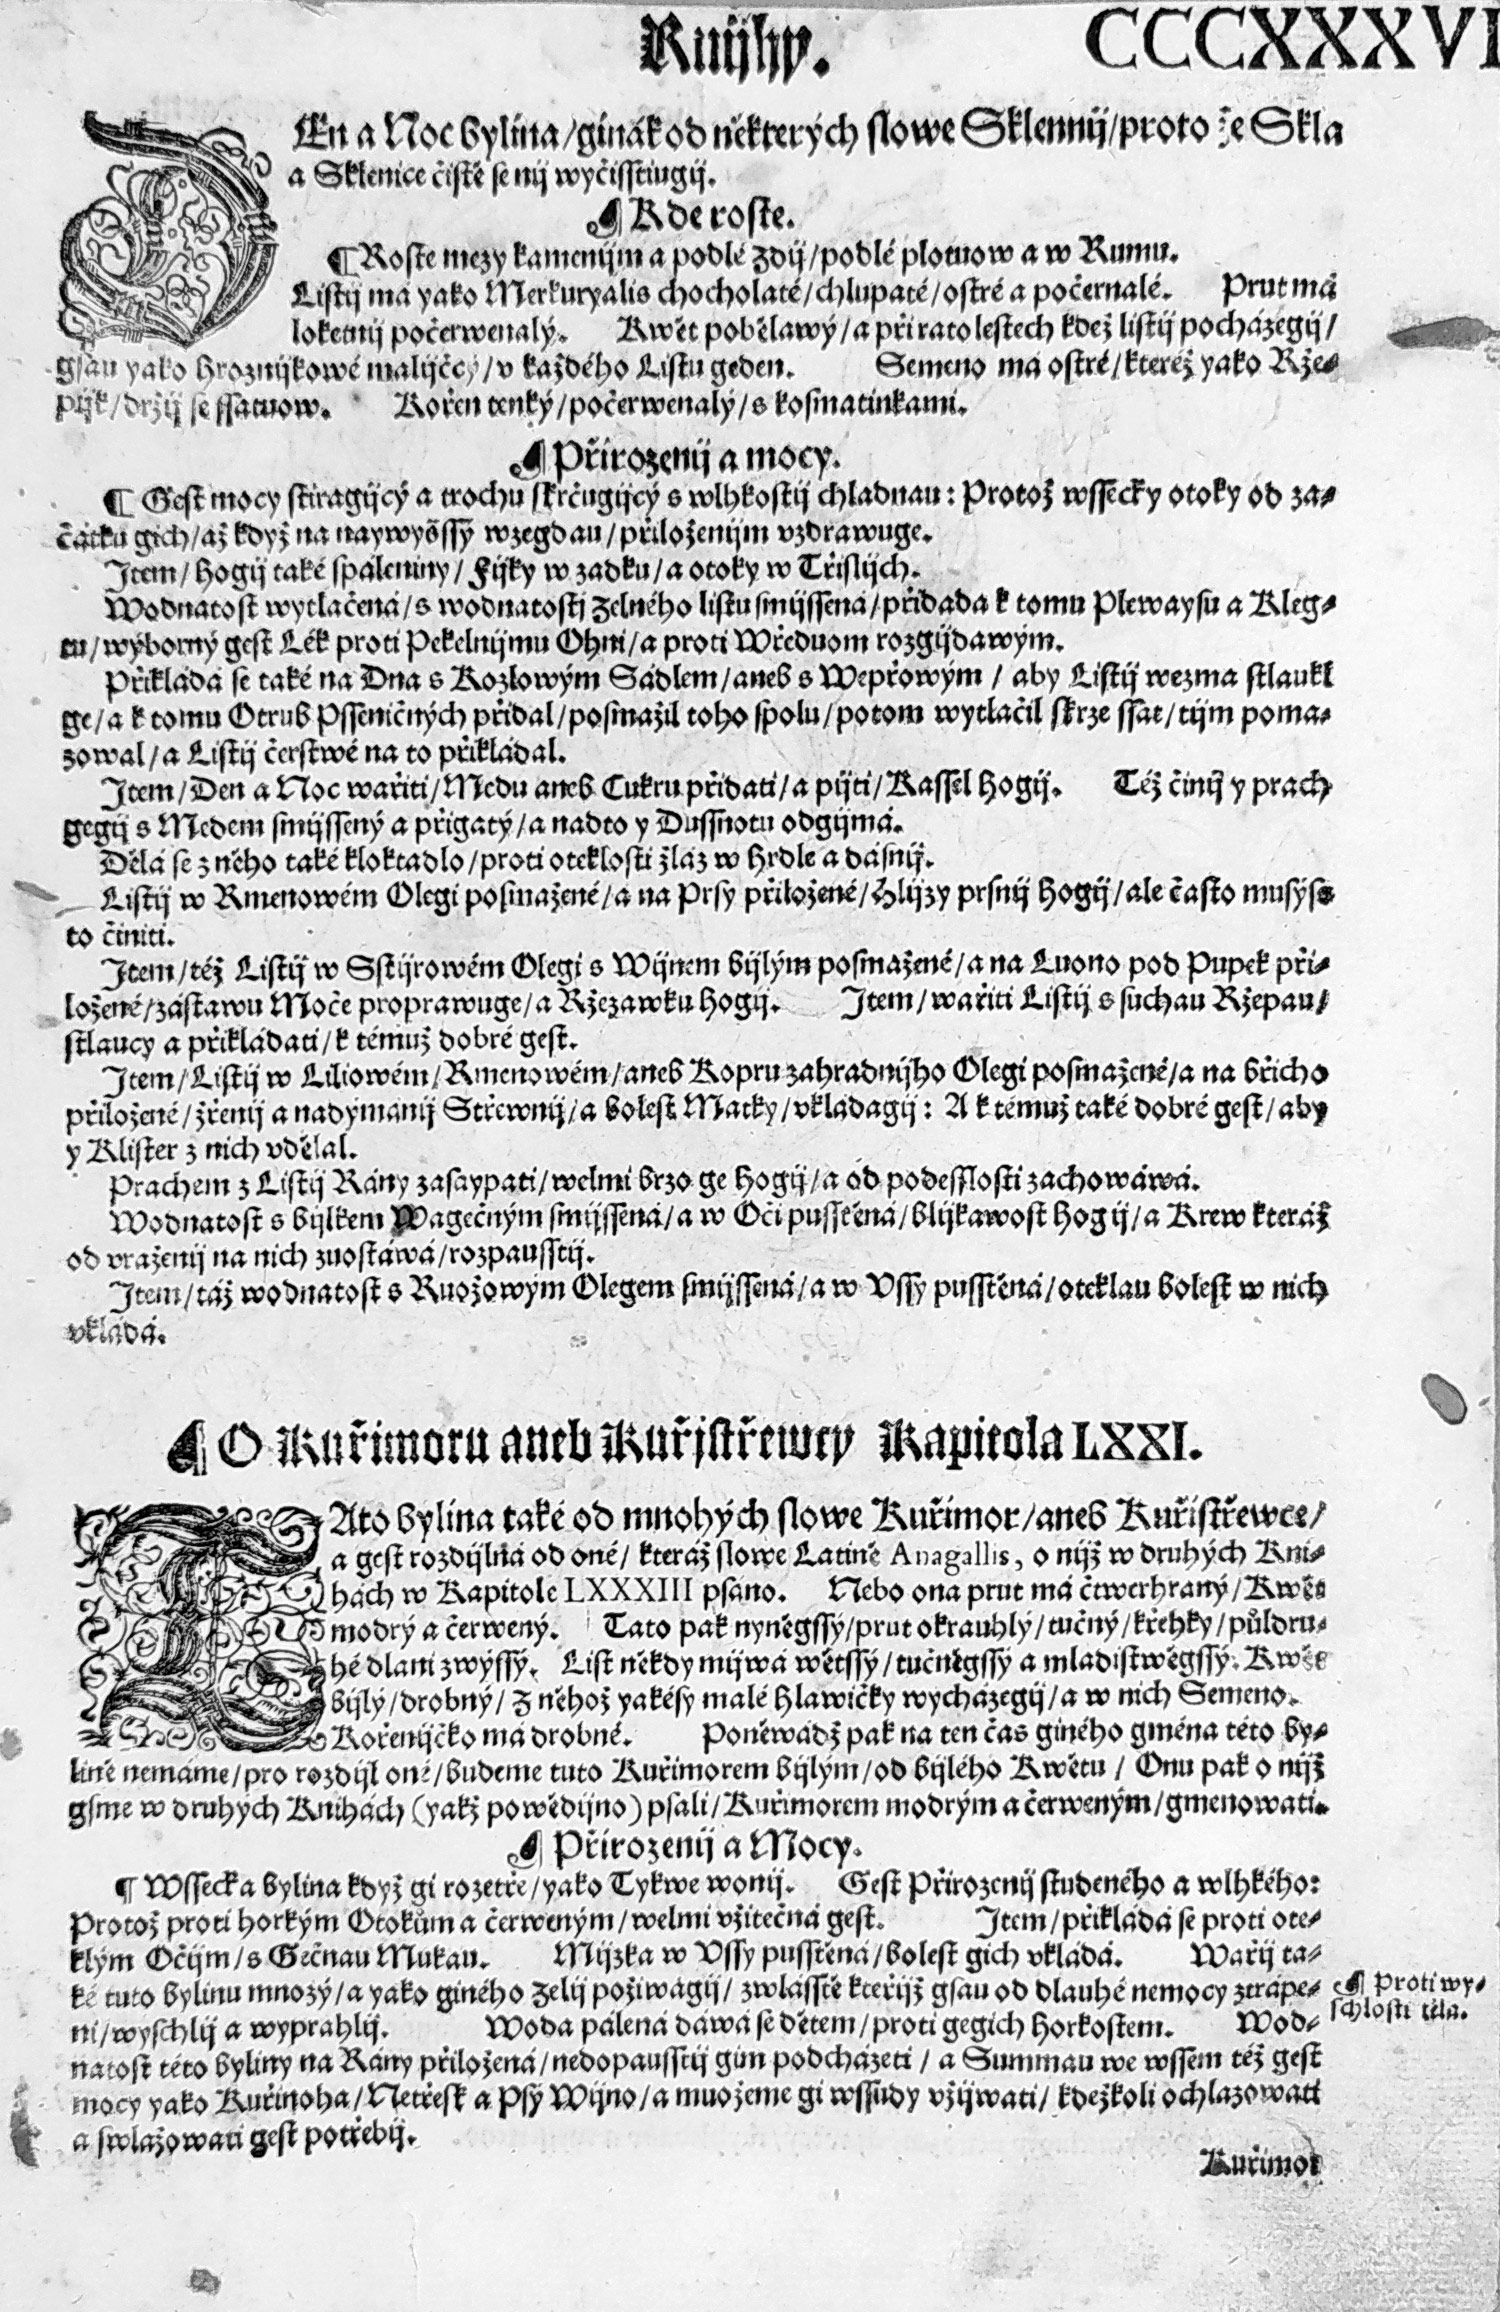 Knijhy.
CCCXXXVI
DEn a Noc bylina/ginák od některých slowe Sklennij/proto že Skla
a Sklenice čistě se nij wyčisstiugij.
¶ Kde roste.
¶ Roste mezy kamenijm a podlé Zdij/podlé plotuow a w Rumu.
Listij má yako Merkuryalis chocholaté/chlupaté/ostré a počernalé. Prut má
loketnij počerwenalý. Kwět pobělawý/a při ratolestech kdež listij pocházegij/
gsau yako Hroznijkowé malijččy/v každého Listu geden. Semeno má ostré/kteréž yako Rže-
pijk/držij se ssatuow. Kořen tenký/počerwenalý/s kosmatinkami.
¶ Přirozenij a mocy.
¶ Gest mocy stiragijcý a trochu skrčugijcý s wlhkostij chladnau: Protož wssecky otoky od za-
čátku gich/až když na naywyšssý wzegdau/přiloženijm vzdrawuge.
Item/Hogij také spáleniny/Fijky w zadku/a otoky w Třislijch.
Wodnatost wytlačená/s wodnatostj Zelného listu smijssená/přidada k tomu Plewaysu a Kleg-
tu/wýborný gest Lék proti Pekelnijmu Ohni/a proti Wředuom rozgijdawým.
Přikládá se také na Dna s Kozlowým Sádlem/aneb s Wepřowým/ aby Listij wezma stlaukl
ge/a k tomu Otrub Psseničných přidal/posmažil toho spolu/potom wytlačil skrze ssat/tijm poma-
zowal/a Listij čerstwé na to přikládal.
Item/Den a Noc wařiti/Medu aneb Cukru přidati/a pijti/Kassel Hogij. Též činij y prach
gegij s Medem smijssený a přigatý/a nadto y Dussnotu odgijmá.
Dělá se z něho také kloktadlo/proti oteklosti žláz w Hrdle a dásnij.
Listij w Rmenowém Olegi posmažené/a na Prsy přiložené/Hlijzy prsnij Hogij/ale často musý se
to činiti.
Item/též Listij w Sstijrowém Olegi s Wijnem bijlým posmažené/a na Luono pod Pupek při-
ložené/zástawu Moče proprawuge/a Ržezawku hogij. Item/wařiti Listij s suchau Ržepau/
stlaucy a přikládati/k témuž dobré gest.
Item/Listij w Liliowém/Rmenowém/aneb Kopru zahradnijho Olegi posmažené/a na břicho
přiložené/žřenij a nadýmánij Střewnij/a bolest Matky/vkládagij: A k témuž také dobré gest/aby
y Klister z nich vdělal.
Prachem z Listij Rány zasaypati/welmi brzo ge Hogij/a od podesslosti zachowáwá.
Wodnatost s bijlkem Wagečným smijssená/a w Oči pusstěná/blijkawost Hogij/a Krew kteráž
od vraženij na nich zuostáwá/rozpausstij.
Item/táž wodnatost s Ruožowým Olegem smijssená/a w Vssy pusstěná/oteklau bolest w nich
vkládá.
¶ O Kuřimoru aneb Kuřjstřewcy Kapitola LXXI.
TAto bylina také od mnohých slowe Kuřimor/aneb Kuřistřewce/
a gest rozdijlná od oné/ kteráž slowe Latině Anagallis, o nijž w druhých Kni-
hách w Kapitole LXXXIII psáno. Nebo ona prut má čtwerhraný/Kwět
modrý a červený. Tato pak nyněgssý/prut okrauhlý/tučný/křehký/půldru-
hé dlani zwýssý. List někdy mijwá wětssý/tučněgssý a mladistwěgssý. Kwět
bijlý/drobný/z něhož yakésy malé Hlawičky wycházegij/a w nich Semeno.
Kořenijčko má drobné. Poněwádž pak na ten čas giného gména této by-
lině nemáme/pro rozdijl oné/budeme tuto Kuřimorem bijlým/od bijlého Kwětu/ Onu pak o nijž
gsme w druhých Knihách (yakž powědijno) psali/Kuřimorem modrým a čerweným/gmenowati.
¶ Přirozenij a Mocy.
¶ Wssecka bylina když gi rozetře/yako Tykwe wonij. Gest Přirozenij studeného a wlhkého:
Protož proti horkým Otokům a čerweným/welmi vžitečná gest. Item/přikládá se proti ote-
klým Očijm/s Gečnau Mukau. Mijzka w Vssy pusstěná/bolest gich vkládá. Wařij ta-
ké tuto bylinu mnozý/a yako giného Zelij požiwagij/ zwlásstě kteřijž gsau od dlauhé nemocy ztrápe-
ni/wyschlij a wyprahlij. Woda pálená dáwá se dětem/proti gegich horkostem. Wod-
natost této byliny na Rány přiložená/nedopausstij gim podcházeti/ a Summau we wssem též gest
mocy yako Kuřinoha/Netřesk a Psý Wijno/a muožeme gi wssudy vžijwati/ kdežkoli ochlazowati
a swlažowati gest potřebij.
¶ Proti wy-
schlosti těla.
Kuřimor